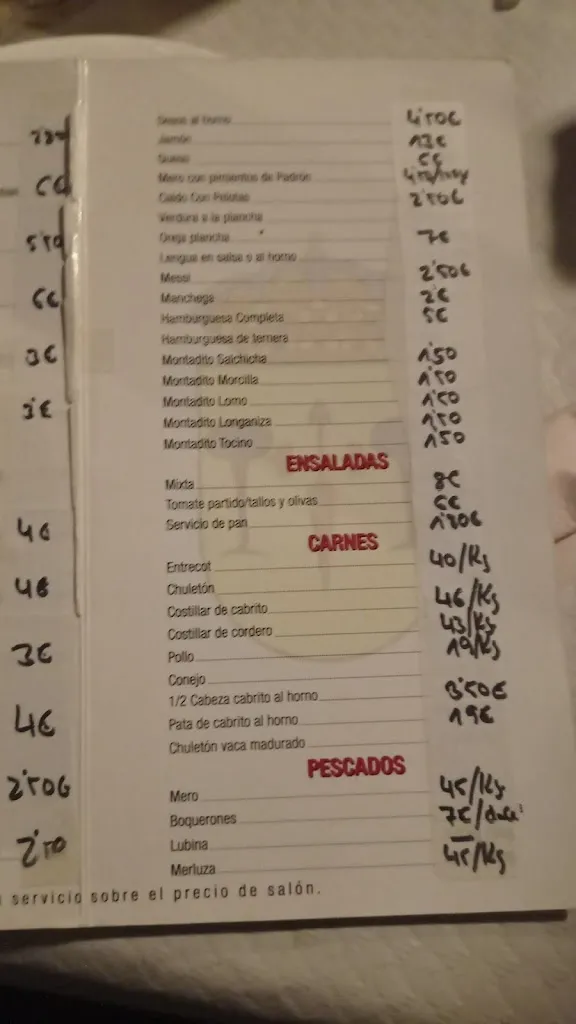 2'50
6€
5'50
6€
3€
3€
4€
4€
3€
4€
2'50€
2'50
Sesos al horno 4'50€
Jamón 13€
Queso 6€
Mero con pimientos de Padrón
Caldo Con Pelotas 2'50€
Verdura a la plancha
Oreja plancha 7€
Lengua en salsa o al horno
Messi 2'50€
Manchega 2€
Hamburguesa Completa 5€
Hamburguesa de ternera
Montadito Salchicha 1'50
Montadito Morcilla 1'50
Montadito Lomo 1'50
Montadito Longaniza 1'50
Montadito Tocino 1'50
ENSALADAS
Mixta 8€
Tomate partido/tallos y olivas 6€
Servicio de pan 1'20€
CARNES
Entrecot 40/Kg
Chuletón 46/Kg
Costillar de cabrito 43/Kg
Costillar de cordero 19/Kg
Pollo
Conejo
1/2 Cabeza cabrito al horno 3'50€
Pata de cabrito al horno 19€
Chuletón vaca madurado
PESCADOS
Mero 45/Kg
Boquerones 7€/
Lubina —
Merluza 45/Kg
servicio sobre el precio de salón.